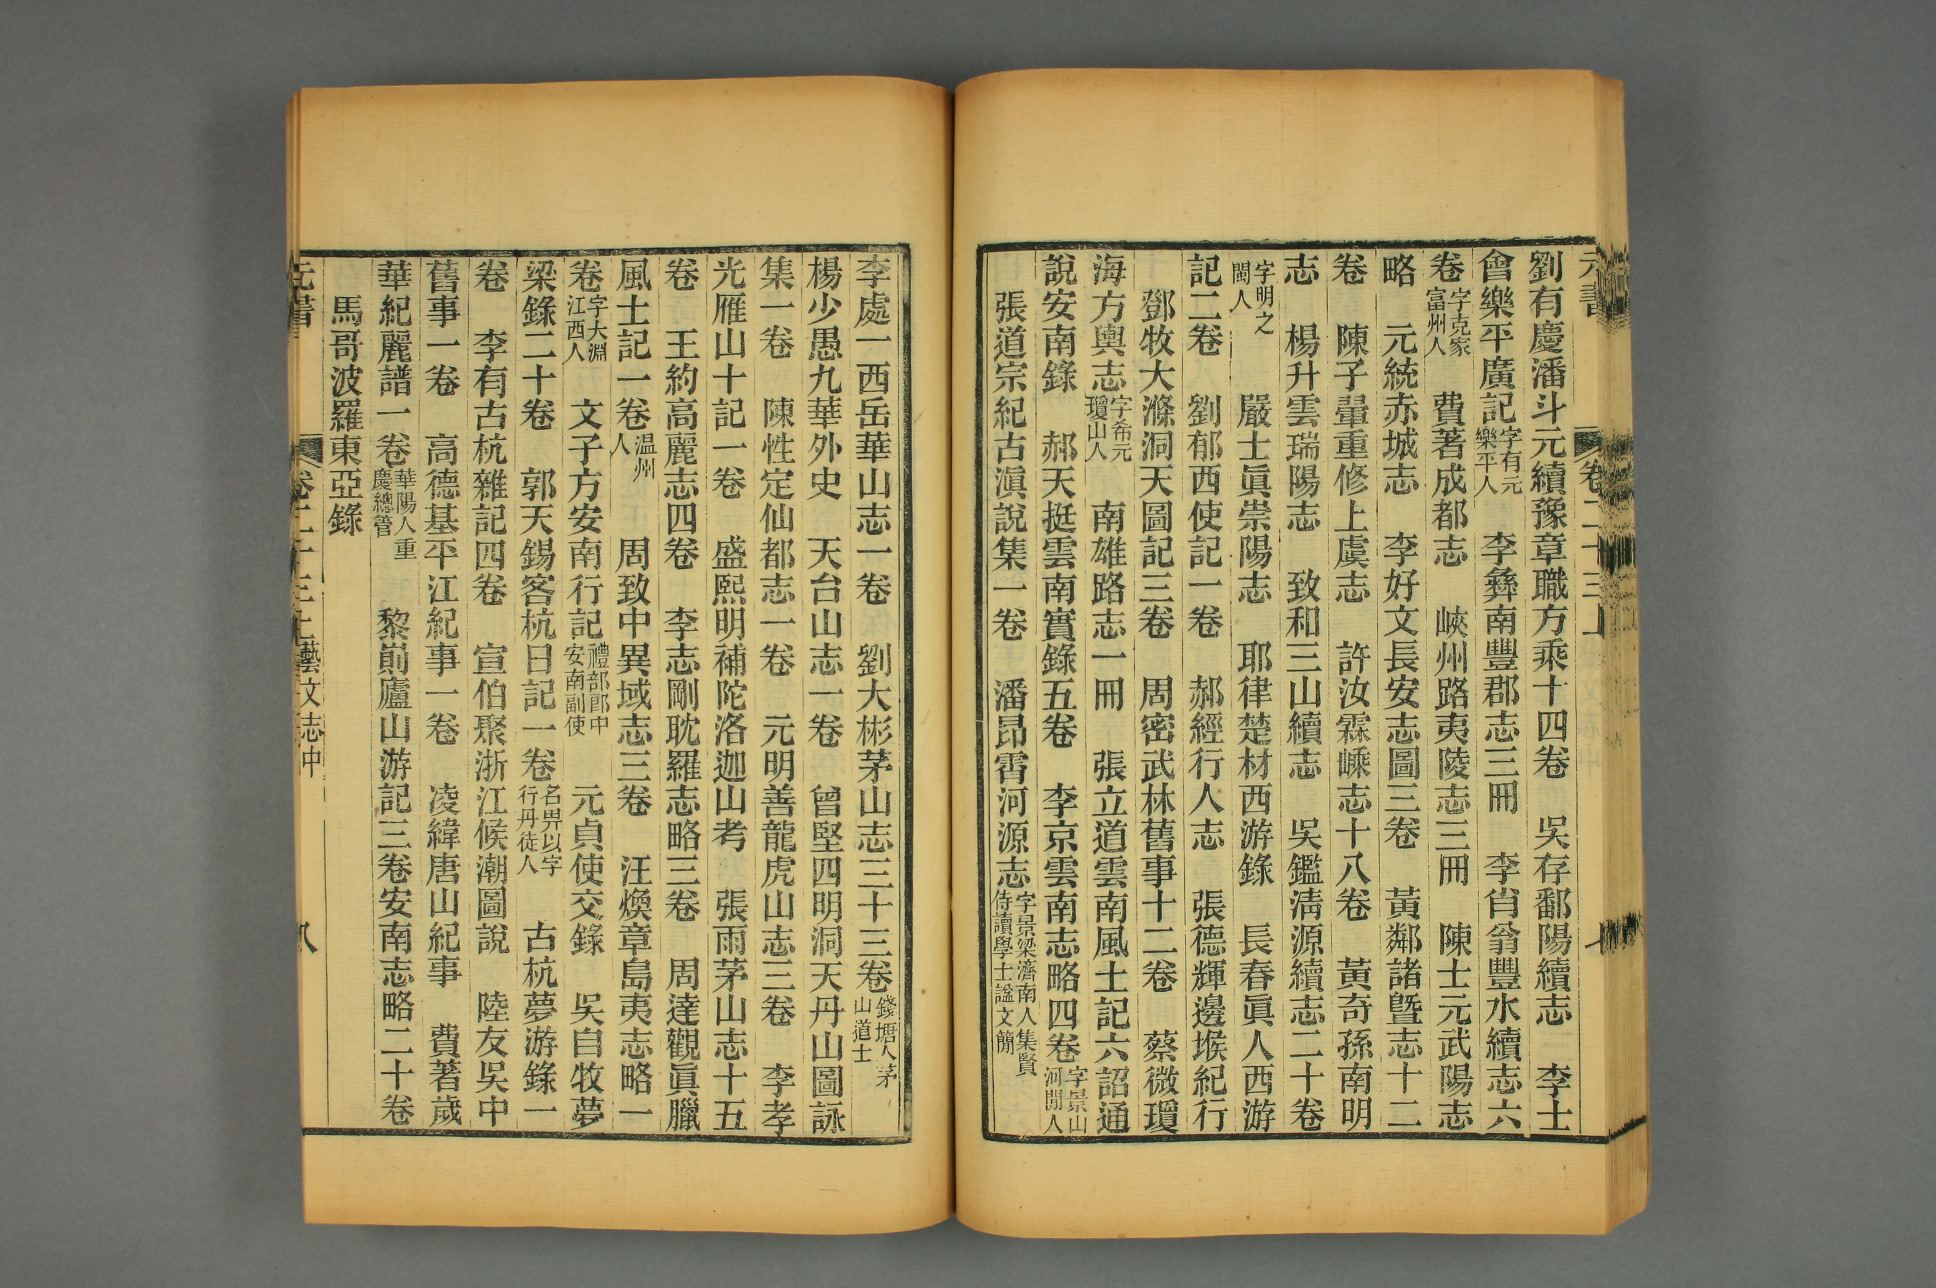 元書
卷二十三上
七
劉有慶潘斗元續豫章職方乘十四卷　吳存鄱陽續志　李士
會樂平廣記字有元樂平人　李彝南豐郡志三冊　李肖翁豐水續志六
卷字克家富州人　費著成都志　峽州路夷陵志三冊　陳士元武陽志
略　元統赤城志　李好文長安志圖三卷　黃鄰諸暨志十二
卷　陳子翬重修上虞志　許汝霖嵊志十八卷　黃奇孫南明
志　楊升雲瑞陽志　致和三山續志　吳鑑淸源續志二十卷
字明之閩人　嚴士眞崇陽志　耶律楚材西游錄　長春眞人西游
記二卷　劉郁西使記一卷　郝經行人志　張德輝邊堠紀行
鄧牧大滌洞天圖記三卷　周密武林舊事十二卷　蔡微瓊
海方輿志字希元瓊山人　南雄路志一冊　張立道雲南風土記六詔通
說安南錄　郝天挺雲南實錄五卷　李京雲南志略四卷字景山河閒人
張道宗紀古滇說集一卷　潘昂霄河源志字景梁濟南人集賢侍讀學士諡文簡
李處一西岳華山志一卷　劉大彬茅山志三十三卷錢塘人茅山道士
楊少愚九華外史　天台山志一卷　曾堅四明洞天丹山圖詠
集一卷　陳性定仙都志一卷　元明善龍虎山志三卷　李孝
光雁山十記一卷　盛熙明補陀洛迦山考　張雨茅山志十五
卷　王約高麗志四卷　李志剛耽羅志略三卷　周達觀眞臘
風土記一卷温州人　周致中異域志三卷　汪煥章島夷志略一
卷字大淵江西人　文子方安南行記禮部郎中安南副使　元貞使交錄　吳自牧夢
梁錄二十卷　郭天錫客杭日記一卷名畀以字行丹徒人　古杭夢游錄一
卷　李有古杭雜記四卷　宣伯聚浙江候潮圖說　陸友吳中
舊事一卷　高德基平江紀事一卷　凌緯唐山紀事　費著歲
華紀麗譜一卷華陽人重慶總管　黎崱廬山游記三卷安南志略二十卷
馬哥波羅東亞錄
元書
卷二十三上藝文志中
八